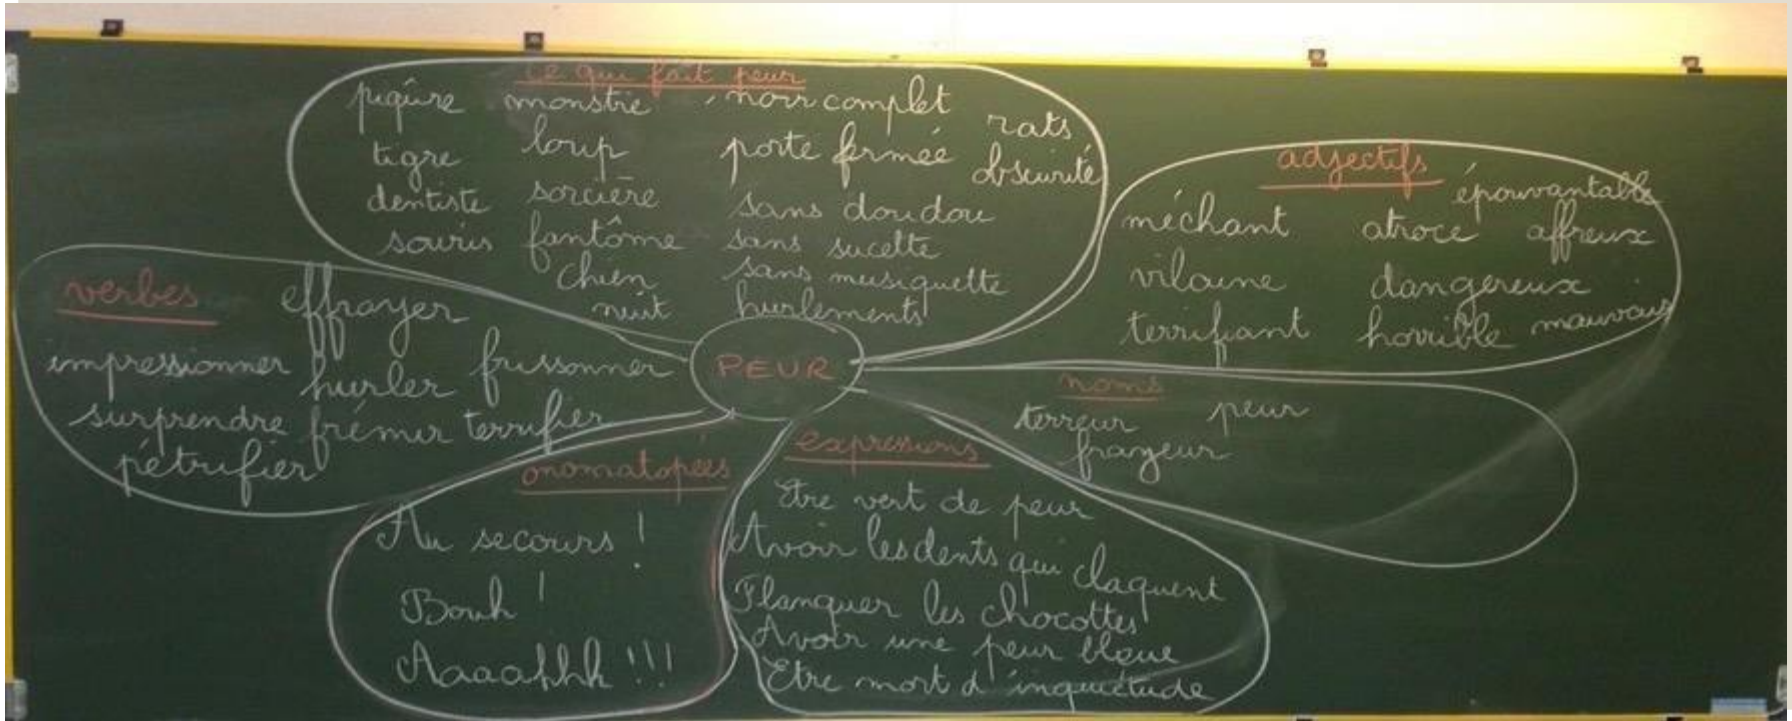 ce qui fait peur
piqûre monstre noir complet
rats
tigre loup porte fermée obscurité
dentiste sorcière sans doudou
souris fantôme sans sucette
chien sans musiquette
nuit hurlements
adjectifs
épouvantable
méchant atroce affreux
vilaine dangereux
terrifiant horrible mauvais
verbes effrayer
impressionner hurler frissonner
surprendre frémir terrifier
pétrifier
PEUR
noms
terreur peur
frayeur
onomatopées
Au secours !
Bouh !
Aaaahhh !!!
expressions
Etre vert de peur
Avoir les dents qui claquent
Flanquer les chocottes
Avoir une peur bleue
Etre mort d'inquiétude